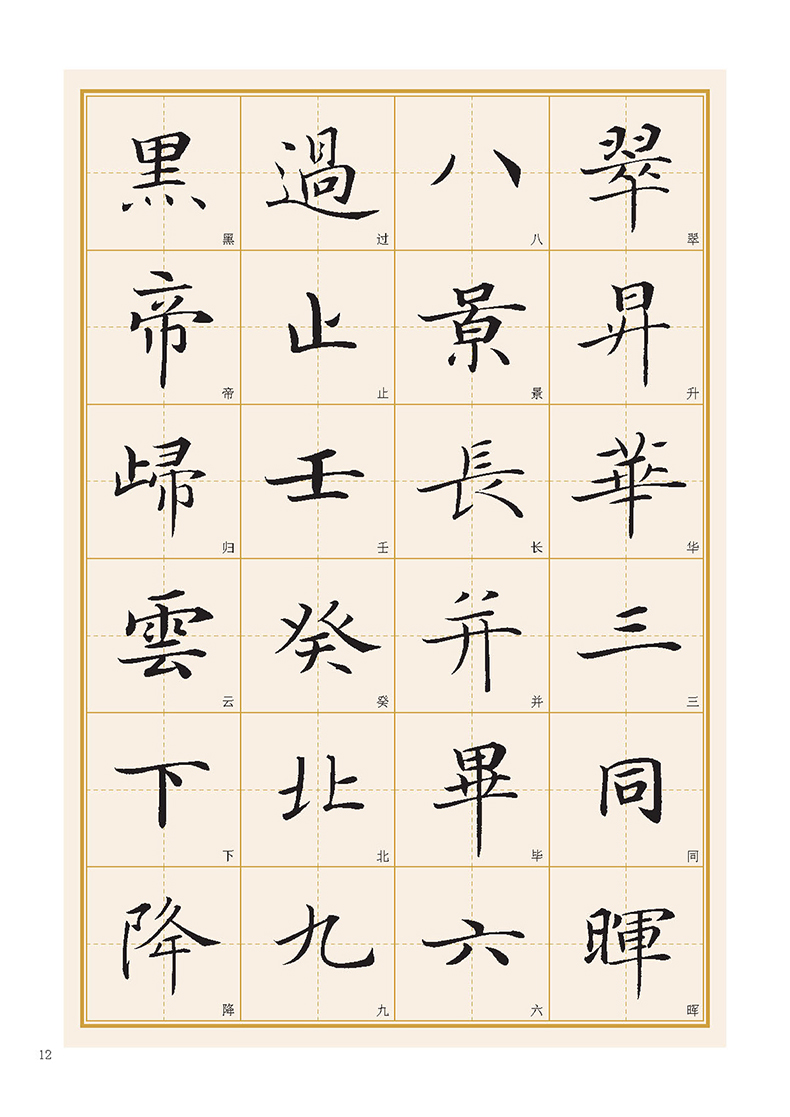 翠昇華三同暉
翠升华三同晖
八景長并畢六
八景长并毕六
過止壬癸北九
过止壬癸北九
黑帝㱕雲下降
黑帝归云下降
12